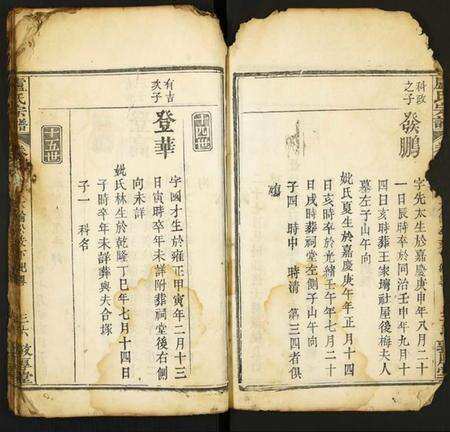 盧氏宗譜
科政
之子
發鵬
字先太生於嘉慶庚申年八月二十
一日辰時卒於同治壬申年九月十
四日亥時葬王家塆社屋後梅夫人
墓左子山午向
妣氏夏生於嘉慶庚午年正月十四
日亥時卒於光緒壬午年七月二十
日戌時葬祠堂左側子山午向
子四 時中 時清 第三四者俱
殤
十四世
有吉
次子
登華
字國才生於雍正甲寅年二月十三
日寅時卒年未詳附葬祠堂後右側
向未詳
妣氏林生於乾隆丁巳年七月十四日
子時卒年未詳葬與夫合塚
子一 科名
十五世
盧氏宗譜
敦厚堂